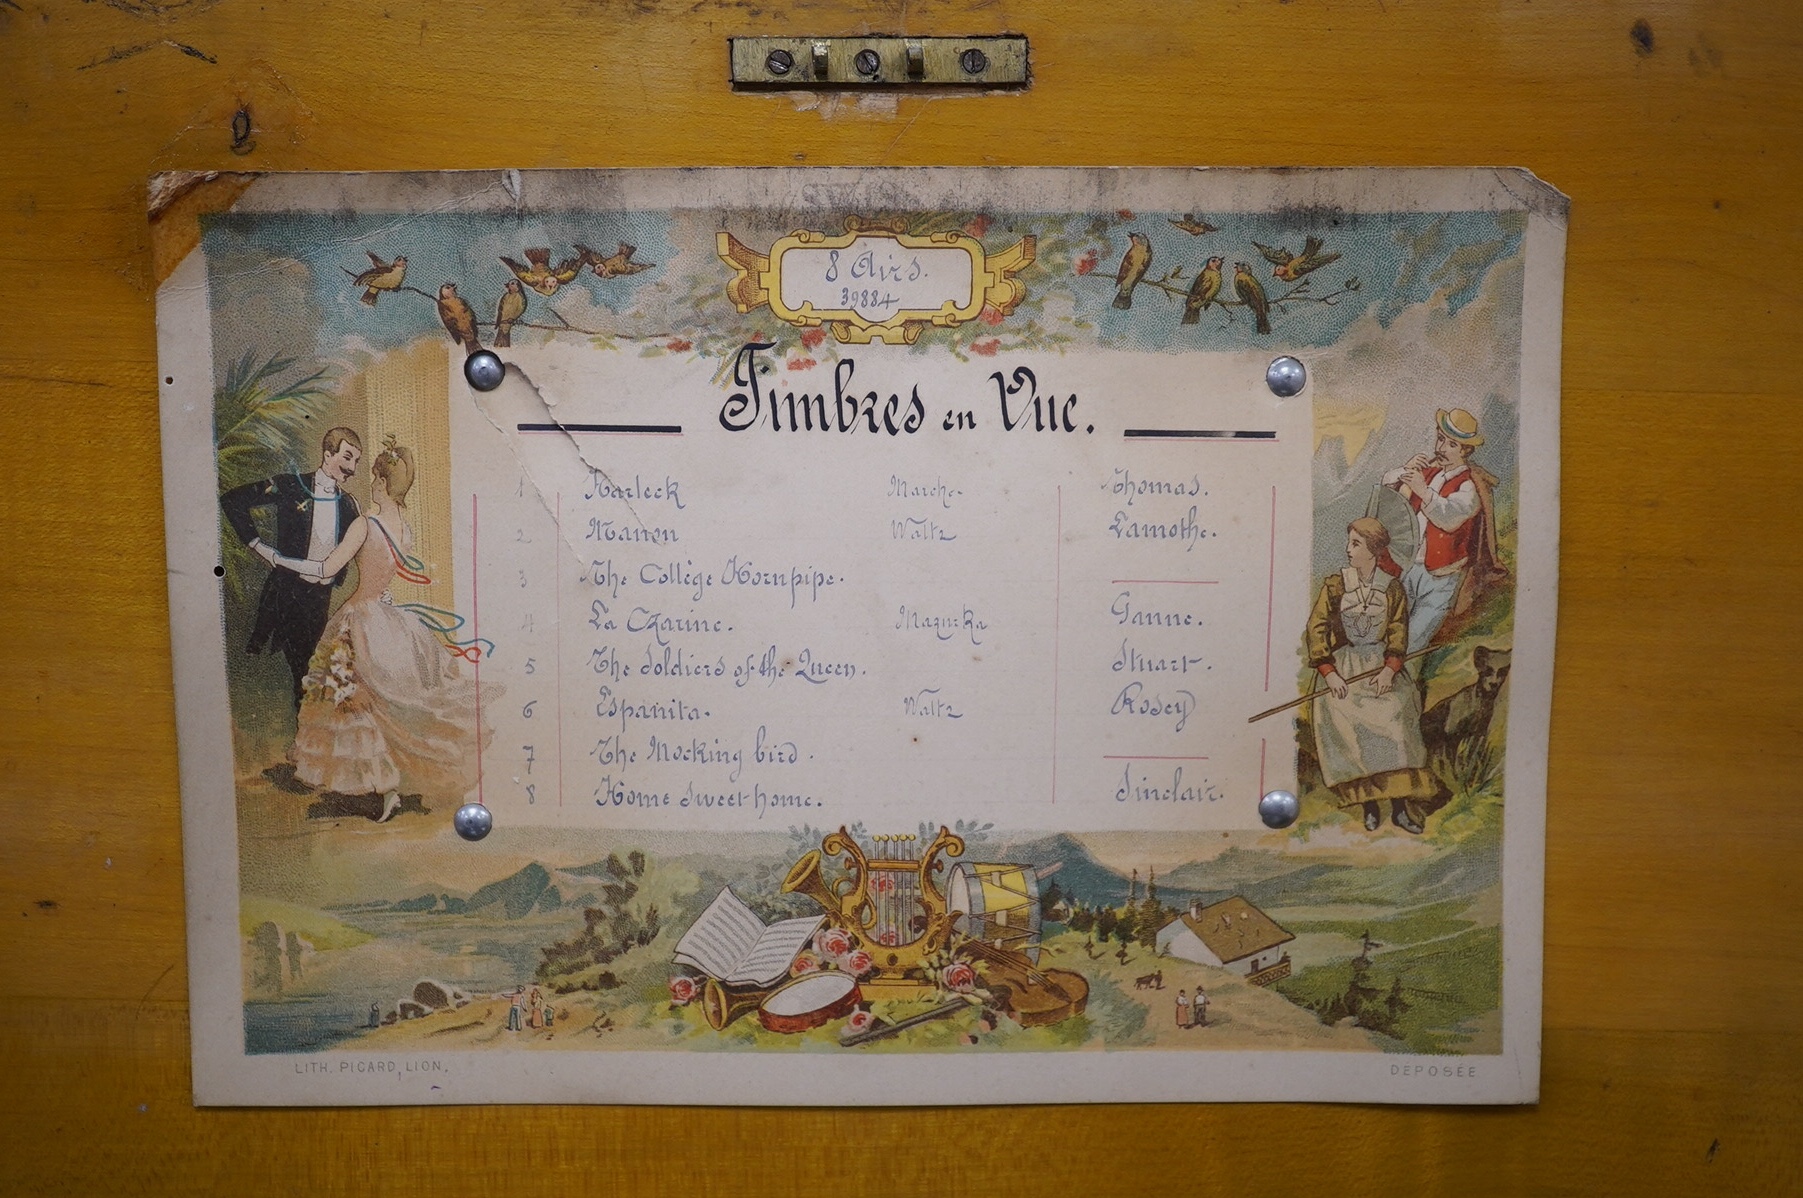 8 Airs.
39884
Timbres en Vue.
1 Harleck Marche. Thomas.
2 Manon Waltz Lamothe.
3 The Collège Hornpipe.
4 La Czarine. Mazurka Ganne.
5 The Soldiers of the Queen. Stuart.
6 Espanita. Waltz Rosey
7 The Mocking bird.
8 Home Sweet home. Sinclair.
LITH. PICARD, LION. DEPOSÉE